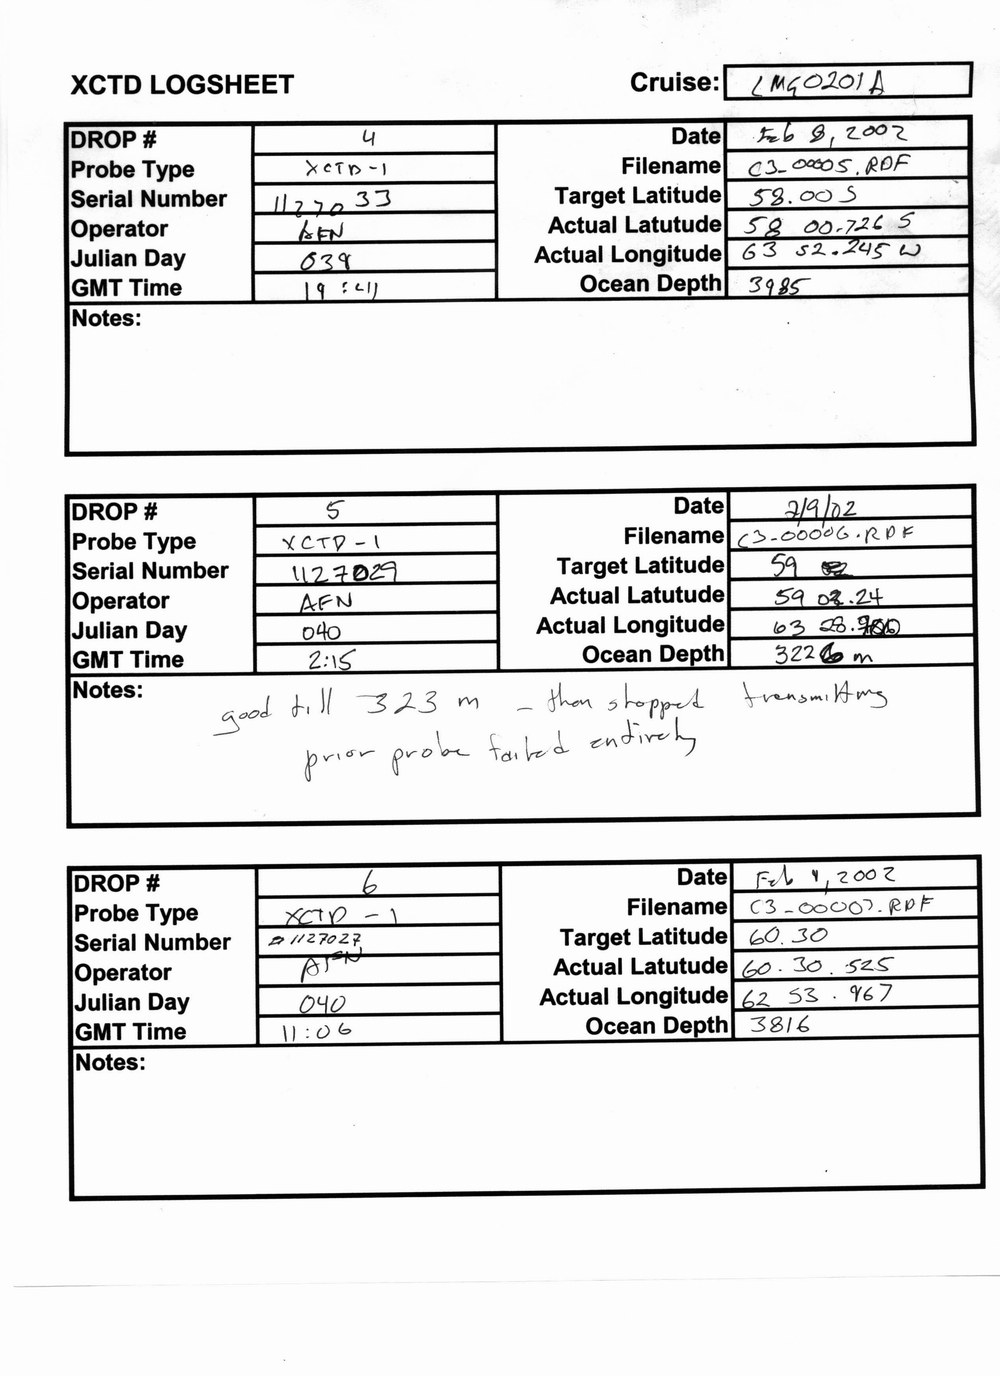 XCTD LOGSHEET Cruise: LMG0201A
DROP # 4 Date Feb 8, 2002
Probe Type XCTD-1 Filename C3_00005.RDF
Serial Number 1127033 Target Latitude 58.00 S
Operator AFN Actual Latutude 58 00.726 S
Julian Day 039 Actual Longitude 63 52.245 W
GMT Time 19:41 Ocean Depth 3985
Notes:
DROP # 5 Date 2/9/02
Probe Type XCTD-1 Filename C3_00006.RDF
Serial Number 1127029 Target Latitude 59
Operator AFN Actual Latutude 59 02.24
Julian Day 040 Actual Longitude 63 28.
GMT Time 2:15 Ocean Depth 3226 m
Notes:
good till 323 m - then stopped transmitting
prior probe failed entirely
DROP # 6 Date Feb 9, 2002
Probe Type XCTD-1 Filename C3_00007.RDF
Serial Number 1127027 Target Latitude 60.30
Operator AFN Actual Latutude 60.30.525
Julian Day 040 Actual Longitude 62 53.967
GMT Time 11:06 Ocean Depth 3816
Notes: